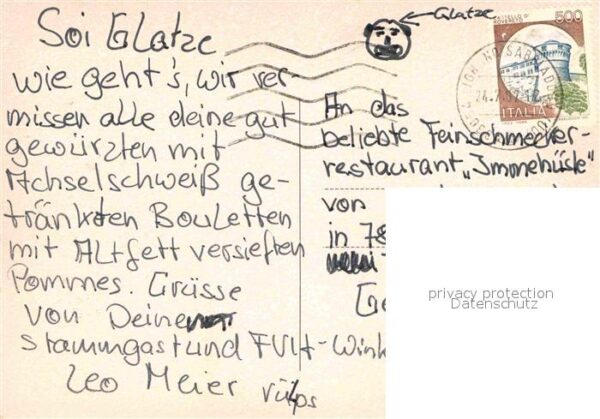 Soi Glatze
wie geht's, wir ver-
missen alle deine gut
gewürzten mit
Achselschweiß ge-
tränkten Bouletten
mit Altfett versieften
Pommes. Grüsse
von Deinem
Stammgast und FVLt-Wink
Leo Meier rülps
Glatze
CASTELLO DI
ROVERETO
500
ITALIA
An das
beliebte Feinschmecker-
restaurant "Immehüsle"
von
in 78
privacy protection
Datenschutz